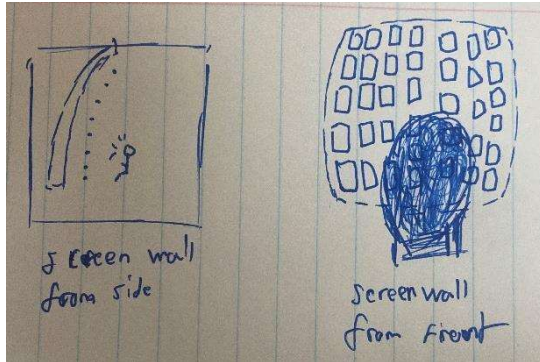 screen wall
from side
screen wall
from front